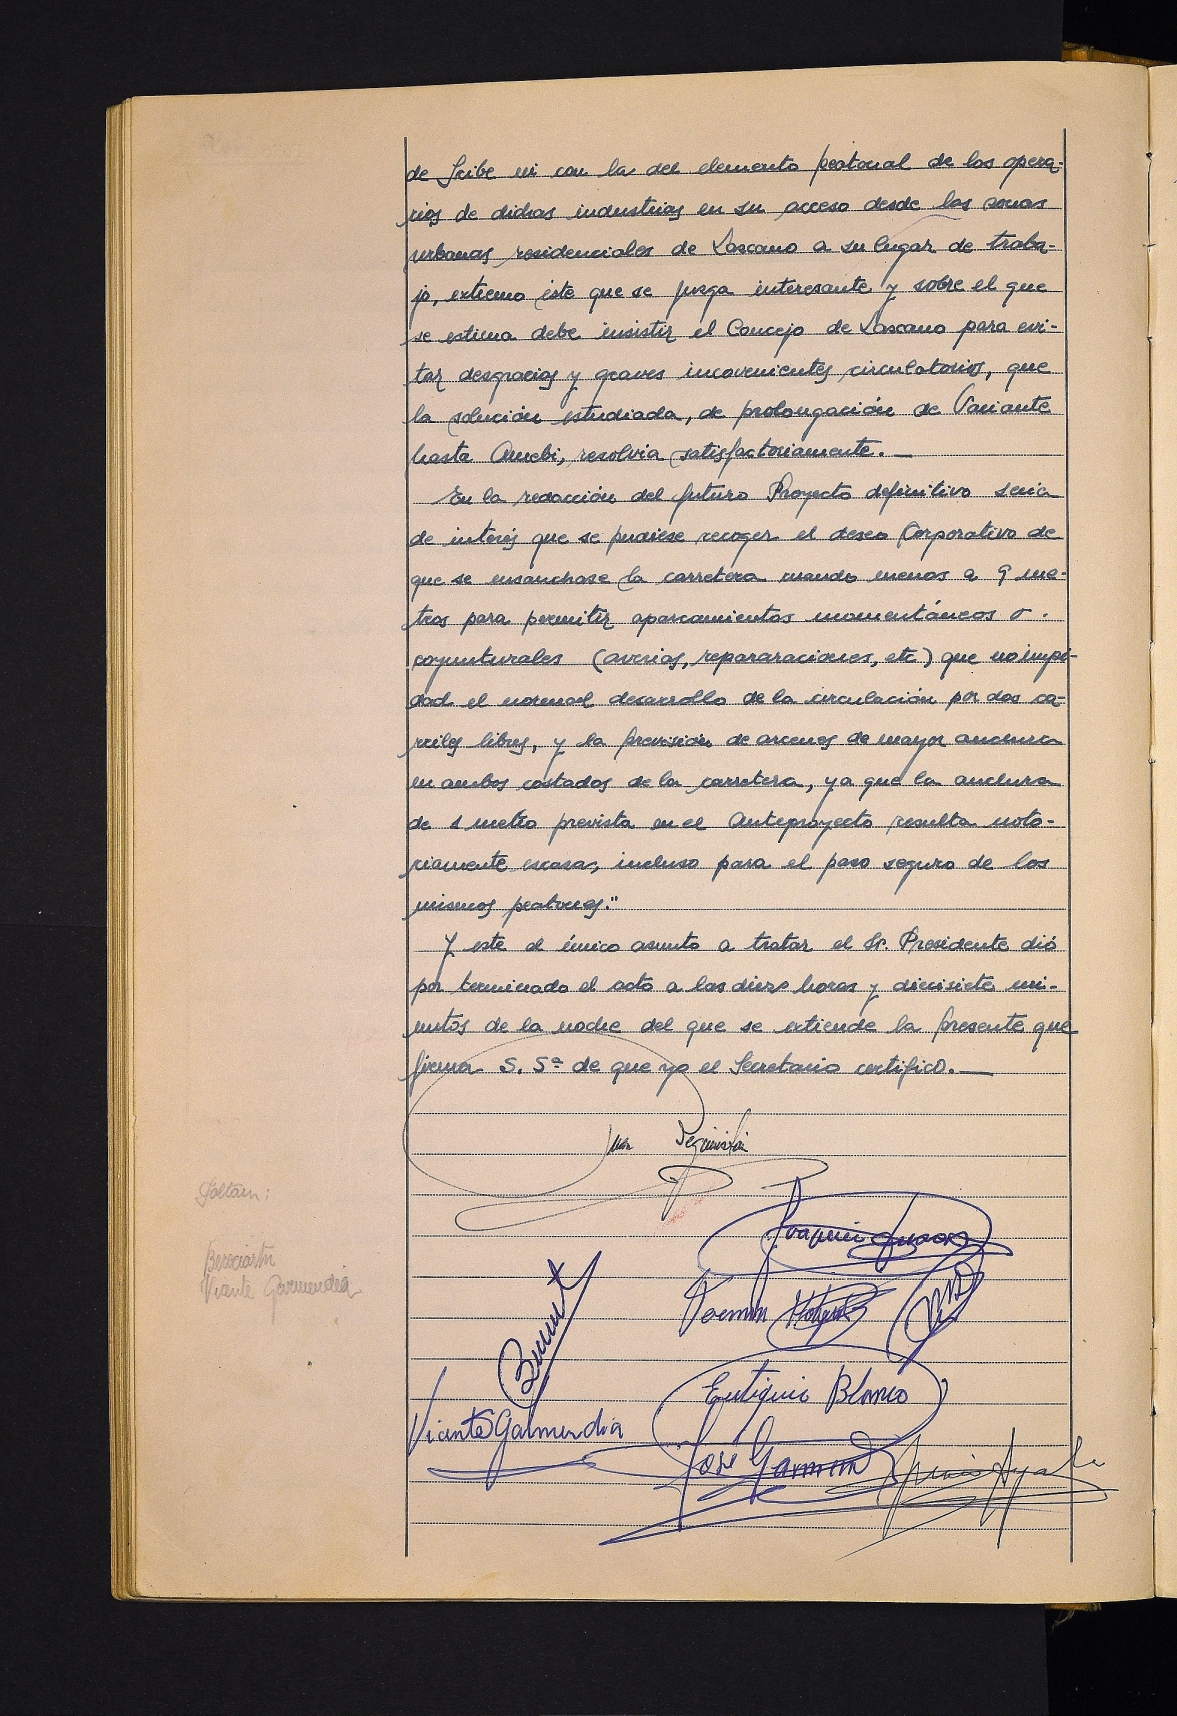 de Seibe ni con la del elemento peatonal de los opera-
rios de dichas industrias en su acceso desde las zonas
urbanas residenciales de Lazcano a su lugar de traba-
jo, extremo éste que se juzga interesante y sobre el que
se estima debe insistir el Concejo de Lazcano para evi-
tar desgracias y graves incovenientes circulatorios, que
la solución estudiada, de prolongación de Variante
hasta resolvia satisfactoriamente.
En la redacción del futuro Proyecto definitivo seria
de interés que se pudiese recoger el deseo Corporativo de
que se ensanchase la carretera cuando menos a 9 me-
tros para permitir aparcamientos momentáneos o
coyunturales (averias, repararaciones, etc) que no impi-
dad el normal desarrollo de la circulación por dos ca-
rriles libres, y la previsión de arcenes de mayor anchura
en ambos costados de la carretera, ya que la anchura
de 1 metro prevista en el Anteproyecto resulta noto-
riamente escasa, incluso para el paso seguro de los
mismos peatones."
Y este el único asunto a tratar el Sr. Presidente dió
por terminado el acto a las diez horas y diecisiete mi-
nutos de la noche del que se extiende la presente que
firma S. Sª de que yo el Secretario certifico.
Juan
Faltan:
Joaquin
Beneciartu
Vicente Garmendia
Fermin
Eutiquio Blanco
Vicente Garmendia
José Garmendia
Ayala